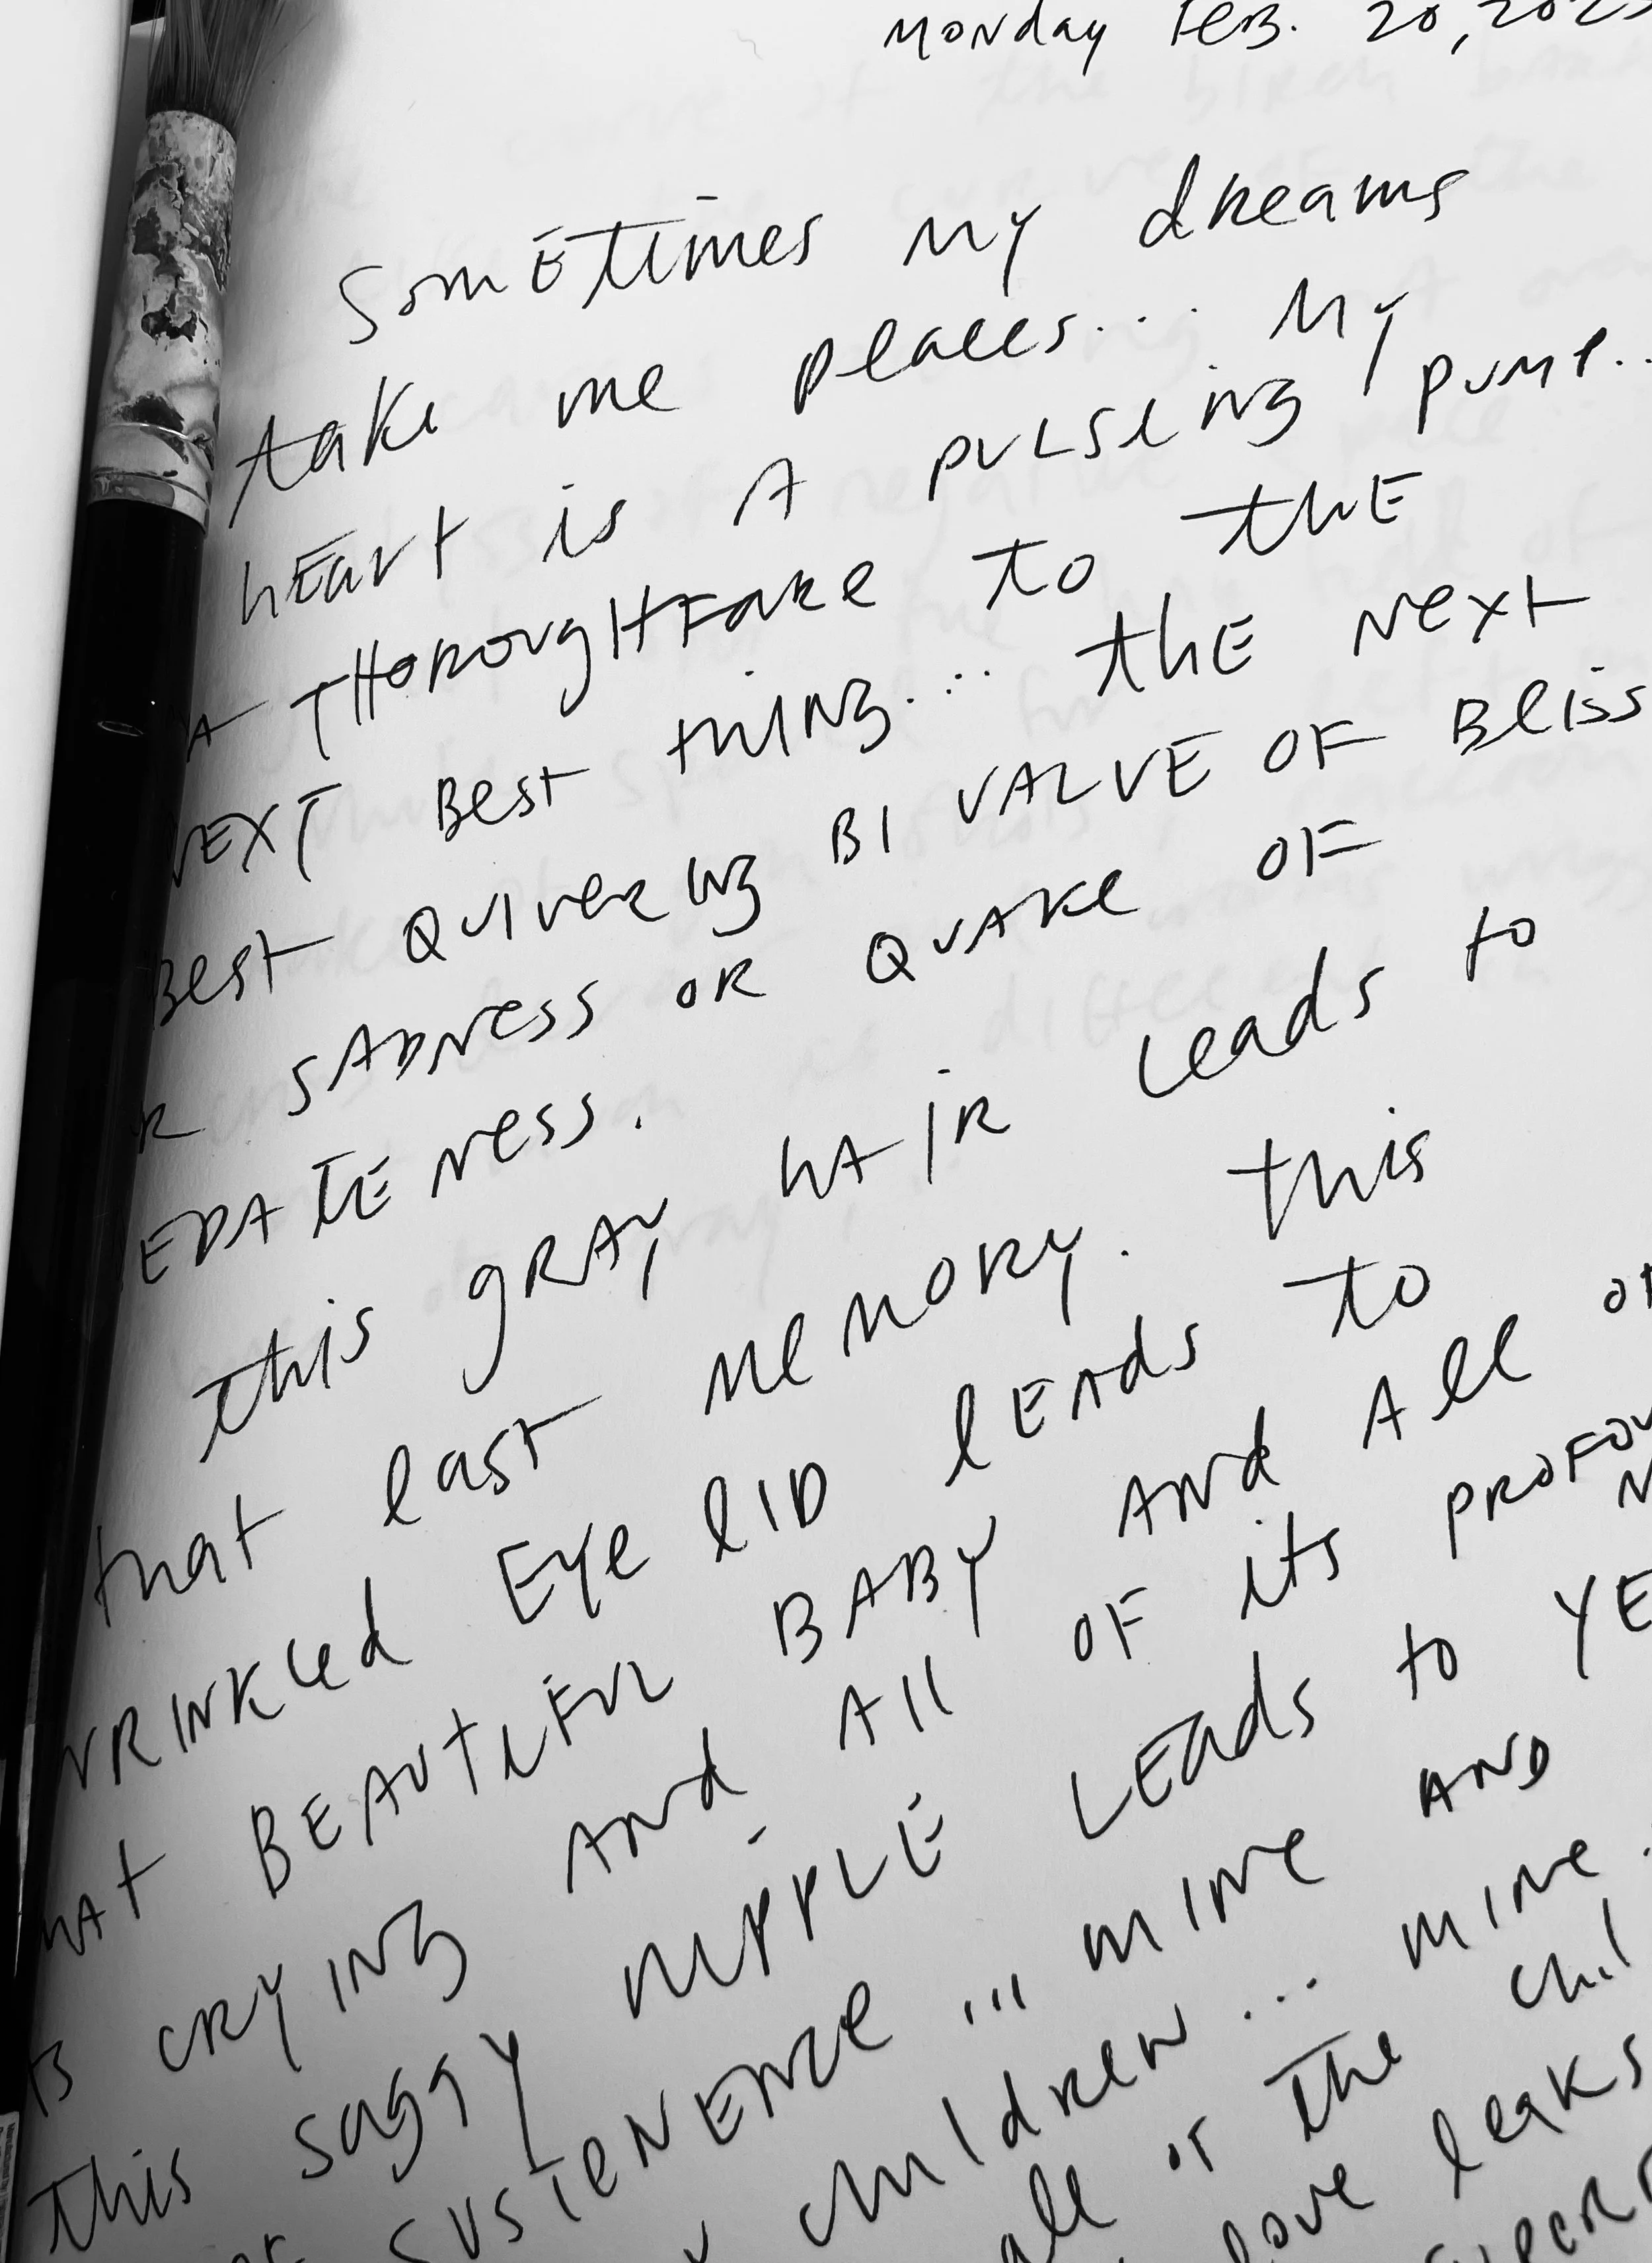 Monday Feb. 20, 202
Sometimes my dreams
take me places... My
heart is A pulsing pump..
A THOROUGHTFARE to the
NEXT Best thing... the Next
Best Quivering BI VALVE OF Bliss
R SADNess OR QUAKE OF
EDATENess.
this gray hair leads to
that last Memory. this
WRINKLed Eye lID lEAds to
hat BEAUTIFUL BABY And All OF
ts CRYING And All OF its PROFOU
this saggy nipple LEads to YE
SUSTENENCE ... mine AND
children... mine.
all of The chil
love leaks